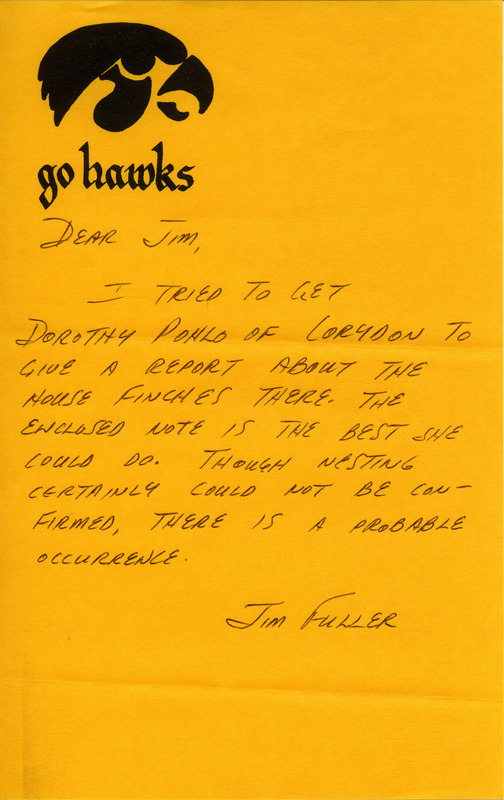 go hawks
DEAR JIM,
I TRIED TO GET
DOROTHY POHLO OF CORYDON TO
GIVE A REPORT ABOUT THE
HOUSE FINCHES THERE. THE
ENCLOSED NOTE IS THE BEST SHE
COULD DO. THOUGH NESTING
CERTAINLY COULD NOT BE CON-
FIRMED, THERE IS A PROBABLE
OCCURRENCE.
JIM FULLER